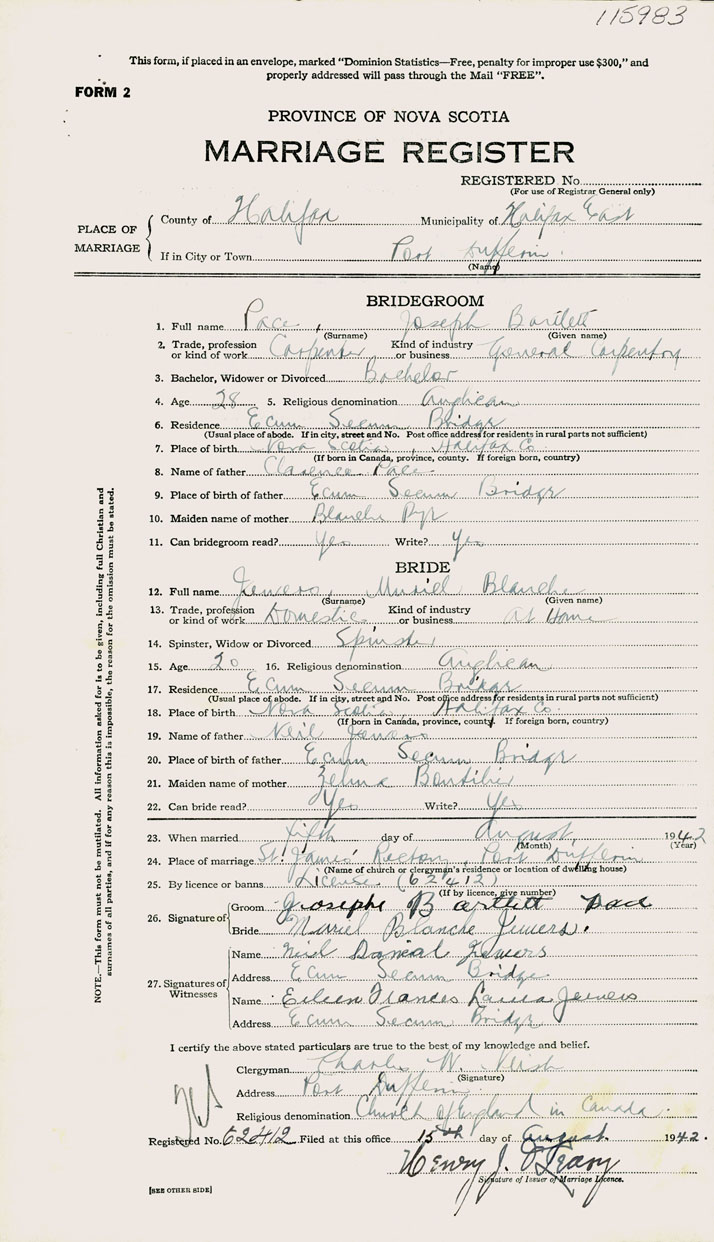 115983
This form, if placed in an envelope, marked "Dominion Statistics—Free, penalty for improper use $300," and
properly addressed will pass through the Mail "FREE".
FORM 2
PROVINCE OF NOVA SCOTIA
MARRIAGE REGISTER
REGISTERED No.
(For use of Registrar General only)
PLACE OF MARRIAGE
County of Halifax Municipality of Halifax East
If in City or Town Port Dufferin
(Name)
BRIDEGROOM
1. Full name Pace, Joseph Bartlett
(Surname) (Given name)
2. Trade, profession or kind of work Carpenter Kind of industry or business General Carpentry
3. Bachelor, Widower or Divorced Bachelor
4. Age 28 5. Religious denomination Anglican
6. Residence Ecum Secum Bridge
(Usual place of abode. If in city, street and No. Post office address for residents in rural parts not sufficient)
7. Place of birth Nova Scotia, Halifax Co
(If born in Canada, province, county. If foreign born, country)
8. Name of father Clarence Pace
9. Place of birth of father Ecum Secum Bridge
10. Maiden name of mother Blanche Pye
11. Can bridegroom read? Yes Write? Yes
BRIDE
12. Full name Jewers, Muriel Blanche
(Surname) (Given name)
13. Trade, profession or kind of work Domestic Kind of industry or business At Home
14. Spinster, Widow or Divorced Spinster
15. Age 20 16. Religious denomination Anglican
17. Residence Ecum Secum Bridge
(Usual place of abode. If in city, street and No. Post office address for residents in rural parts not sufficient)
18. Place of birth Nova Scotia, Halifax Co.
(If born in Canada, province, county. If foreign born, country)
19. Name of father Neil Jewers
20. Place of birth of father Ecum Secum Bridge
21. Maiden name of mother Zelma Boutilier
22. Can bride read? Yes Write? Yes
23. When married fifth day of August 1942
(Month) (Year)
24. Place of marriage St. James' Rectory, Port Dufferin
(Name of church or clergyman's residence or location of dwelling house)
25. By licence or banns License (62413)
(If by licence, give number)
26. Signature of Groom Josephe Bartlett Pace
Bride Muriel Blanche Jewers.
27. Signatures of Witnesses
Name Neil Danial Jewers
Address Ecum Secum Bridge
Name Eileen Frances Laura Jewers
Address Ecum Secum Bridge
I certify the above stated particulars are true to the best of my knowledge and belief.
Clergyman Charles W.
(Signature)
Address Port Dufferin
Religious denomination Church of England in Canada.
Registered No. 62412 Filed at this office 15th day of August 1942.
Henry J. O'Leary
Signature of Issuer of Marriage Licence.
[SEE OTHER SIDE]
NOTE.—This form must not be mutilated. All information asked for is to be given, including full Christian and
surnames of all parties, and if for any reason this is impossible, the reason for the omission must be stated.